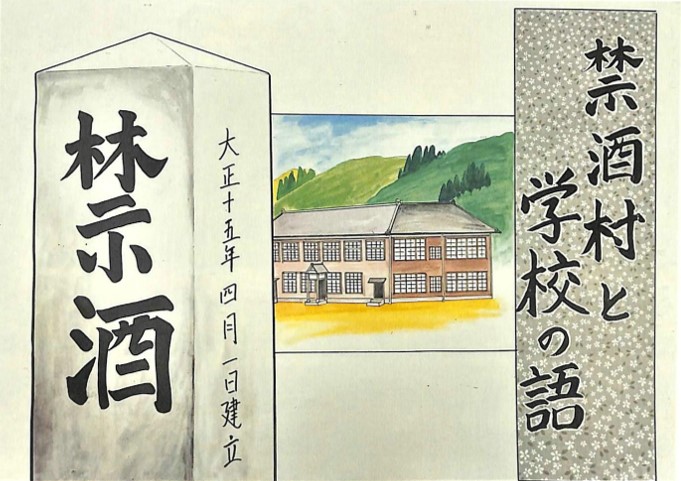 禁酒村と
学校の語
大正十五年四月一日建立
禁酒